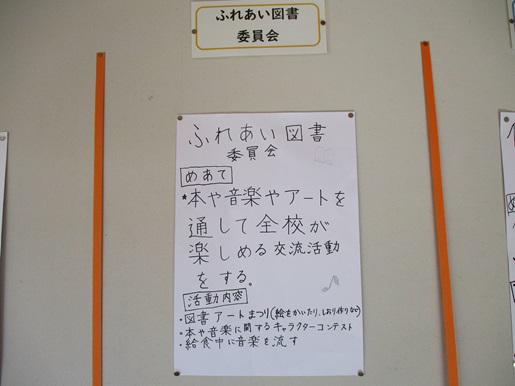 ふれあい図書
委員会
ふれあい図書
委員会
めあて
*本や音楽やアートを
通して全校が
楽しめる交流活動
をする。
活動内容
・図書アートまつり(絵をかいたり、しおり作りなど)
・本や音楽に関するキャラクターコンテスト
・給食中に音楽を流す